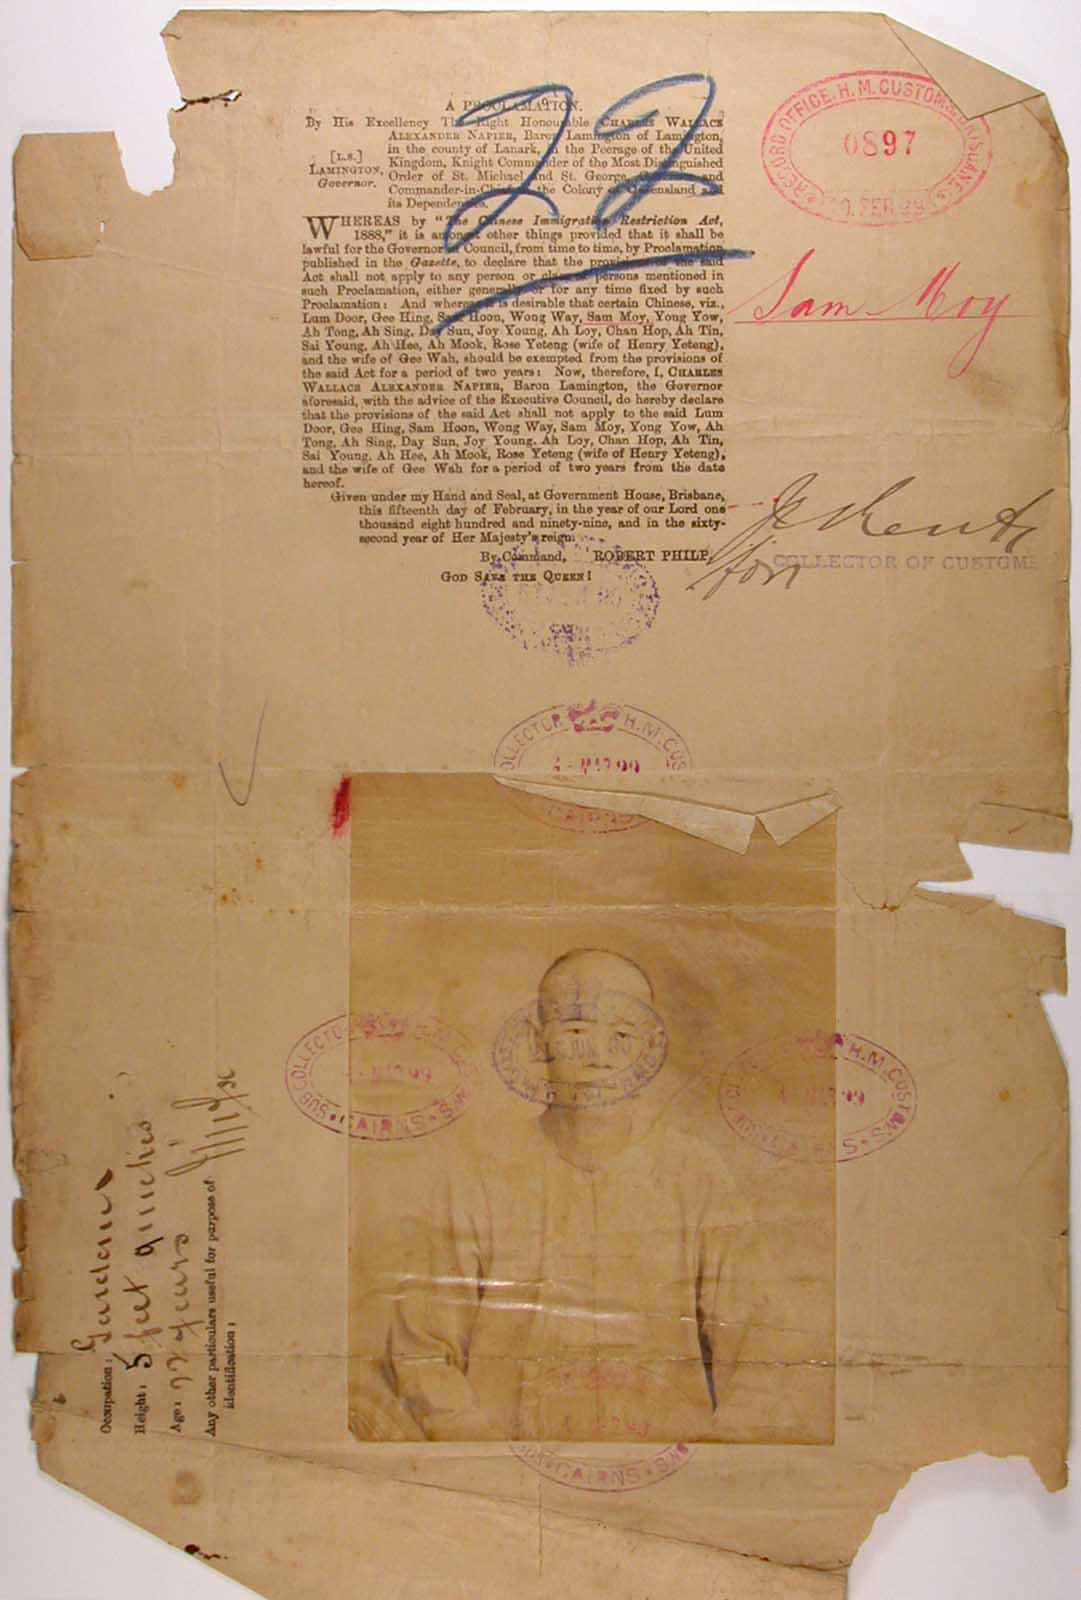 22
A PROCLAMATION.
By His Excellency The Right Honourable CHARLES WALLACE
ALEXANDER NAPIER, Baron Lamington of Lamington,
in the county of Lanark, in the Peerage of the United
[L.S.] Kingdom, Knight Commander of the Most Distinguished
LAMINGTON, Order of St. Michael and St. George, Governor and
Governor. Commander-in-Chief of the Colony of Queensland and
its Dependencies.
WHEREAS by "The Chinese Immigration Restriction Act,
1888," it is amongst other things provided that it shall be
lawful for the Governor in Council, from time to time, by Proclamation
published in the Gazette, to declare that the provisions of the said
Act shall not apply to any person or class of persons mentioned in
such Proclamation, either generally or for any time fixed by such
Proclamation: And whereas it is desirable that certain Chinese, viz.,
Lum Door, Gee Hing, Sam Hoon, Wong Way, Sam Moy, Yong Yow,
Ah Tong, Ah Sing, Day Sun, Joy Young, Ah Loy, Chan Hop, Ah Tin,
Sai Young, Ah Hee, Ah Mook, Rose Yeteng (wife of Henry Yeteng),
and the wife of Gee Wah, should be exempted from the provisions of
the said Act for a period of two years: Now, therefore, I, CHARLES
WALLACE ALEXANDER NAPIER, Baron Lamington, the Governor
aforesaid, with the advice of the Executive Council, do hereby declare
that the provisions of the said Act shall not apply to the said Lum
Door, Gee Hing, Sam Hoon, Wong Way, Sam Moy, Yong Yow, Ah
Tong, Ah Sing, Day Sun, Joy Young, Ah Loy, Chan Hop, Ah Tin,
Sai Young, Ah Hee, Ah Mook, Rose Yeteng (wife of Henry Yeteng),
and the wife of Gee Wah for a period of two years from the date
hereof.
Given under my Hand and Seal, at Government House, Brisbane,
this fifteenth day of February, in the year of our Lord one
thousand eight hundred and ninety-nine, and in the sixty-
second year of Her Majesty's reign.
By Command, ROBERT PHILP.
GOD SAVE THE QUEEN!
RECORD OFFICE. H.M. CUSTOMS BRISBANE
0897
FEB 99
Sam Moy
for
COLLECTOR OF CUSTOMS
COLLECTOR H.M. CUS
4 - MAR 99
CAIRNS
SUB COLLECTOR
CAIRNS
H.M. CUSTOMS
CAIRNS
Occupation: Gardener
Height: 5 feet 9 inches
Age: 27 years
Any other particulars useful for purpose of
identification: